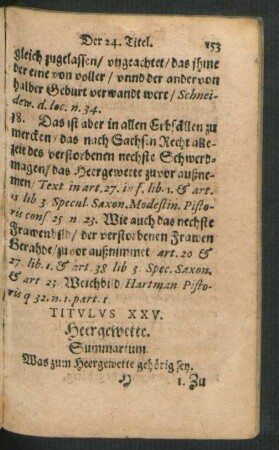 Der 24. Titel. 153
gleich zugelassen/ vngeachtet/ das jhme
der eine von voller/ vnnd der ander von
halber Geburt verwandt were/ Schnei-
dew. d. loc. n. 34.
78. Das ist aber in allen Erbfällen zu
mercken/ das nach Sachsen Recht alle-
zeit des verstorbenen nechste Schwerd-
magen/ das Heergewette zuvor außne-
men/ Text in art. 27. in f. lib. 1. & art.
lib 3 Specul. Saxon. Modestin. Pisto-
ris cons 25 n 23. Wie auch das nechste
Frawenbild/ der verstorbenen Frawen
Gerahde/ zuvor außnimmet art. 20 &
27. lib. 1. & art. 38 lib 3. Spec. Saxon.
& art 23 Weichbild Hartman Pisto-
ris q 32. n. 1. part. 1.
TITVLVS XXV.
Heergewette.
Summarium.
Was zum Heergewette gehörig sey.
1. Zu